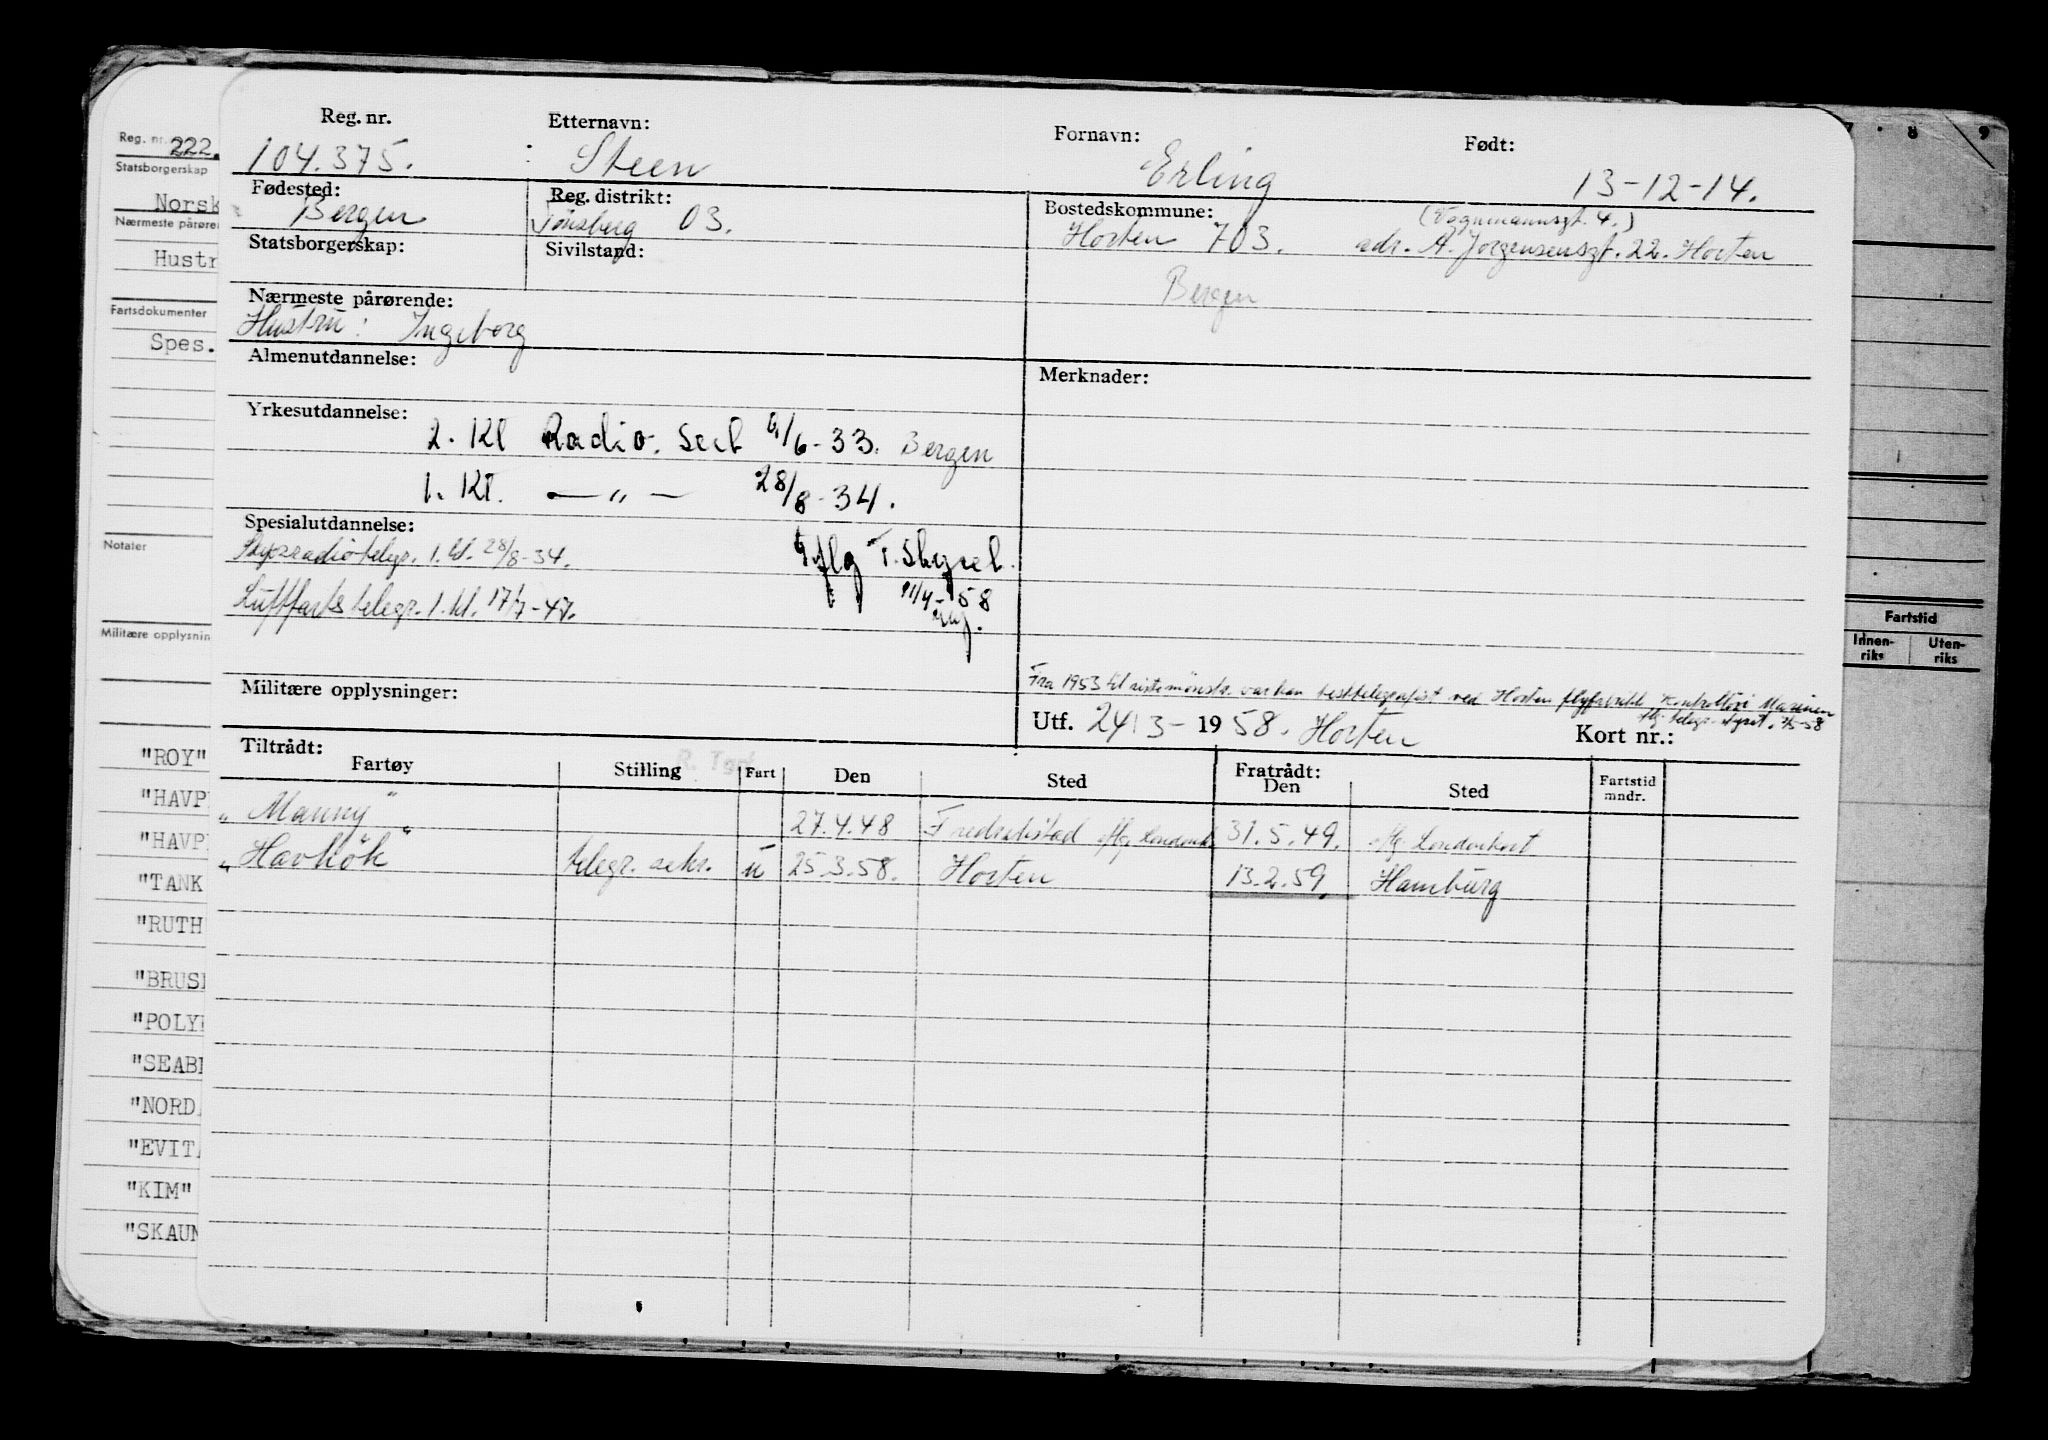 Reg. nr. Etternavn: Fornavn: Født:
104.375. Steen Erling 13-12-14.
Fødested: Reg. distrikt: Bostedskommune:
Bergen Tønsberg 03. Horten 703. adr. A. Jørgensensgt. 22. Horten
Statsborgerskap: Sivilstand:
Bergen
Nærmeste pårørende:
Hustru: Ingeborg
Almenutdannelse: Merknader:
Yrkesutdannelse:
2. Kl Radio. Sert 6/6-33. Bergen
1. Kl. —„— 28/8-34.
Spesialutdannelse:
Skipsradiotelegr. 1. kl. 28/8-34.
Luftfartstelegr. 1. kl. 17/7-47.
Militære opplysninger:
Fra 1953 til siste mønstr. var han ved Horten
Utf. 24/3-1958. Horten Kort nr.:
Tiltrådt: Fratrådt:
Fartøy Stilling Fart Den Sted Den Sted Fartstid mndr.
„Manny" 27.4.48 Fredrikstad 31.5.49.
„Havkök" telegr. sekr. u 25.3.58. Horten 13.2.59. Hamburg
Reg. nr. 222.
Statsborgerskap
Norsk
Nærmeste
Hustr
Fartsdokumenter
Spes.
Notater
Militære
"ROY"
"HAVP
"HAVP
"TANK
"RUTH
"BRUS
"POLY
"SEAB
"NORD
"EVIT
"KIM"
"SKAUN
8 9
Fartstid
Innen-riks Uten-riks